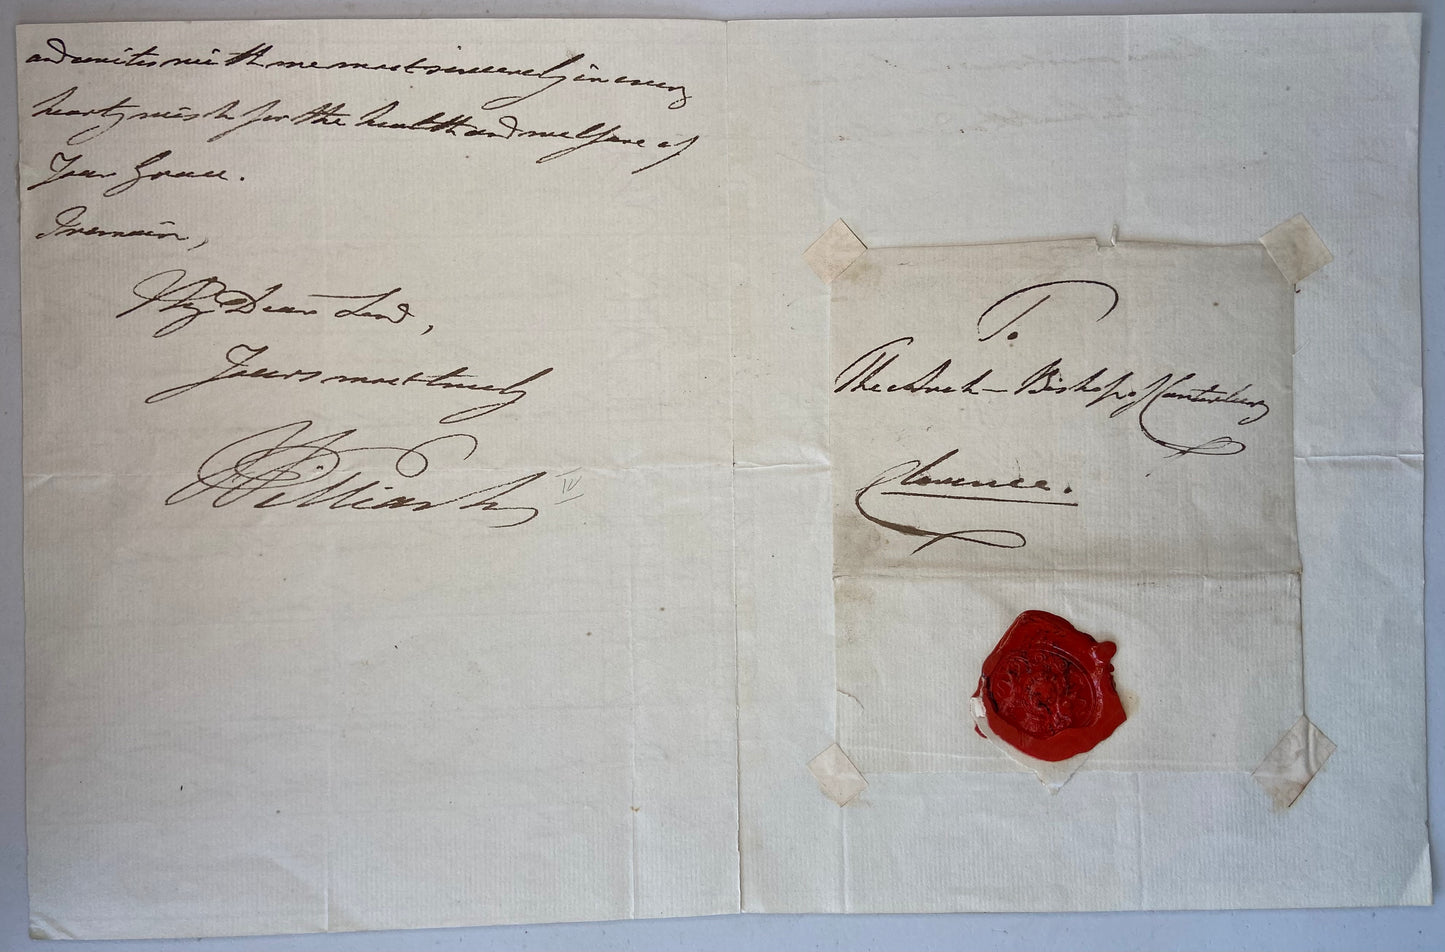 and unites with me most sincerely in every
hearty wish for the health and welfare of
Your Grace.
I remain,
My Dear Lord,
Yours most truly
William
IV
To
The Arch-Bishop of Canterbury
Clarence.